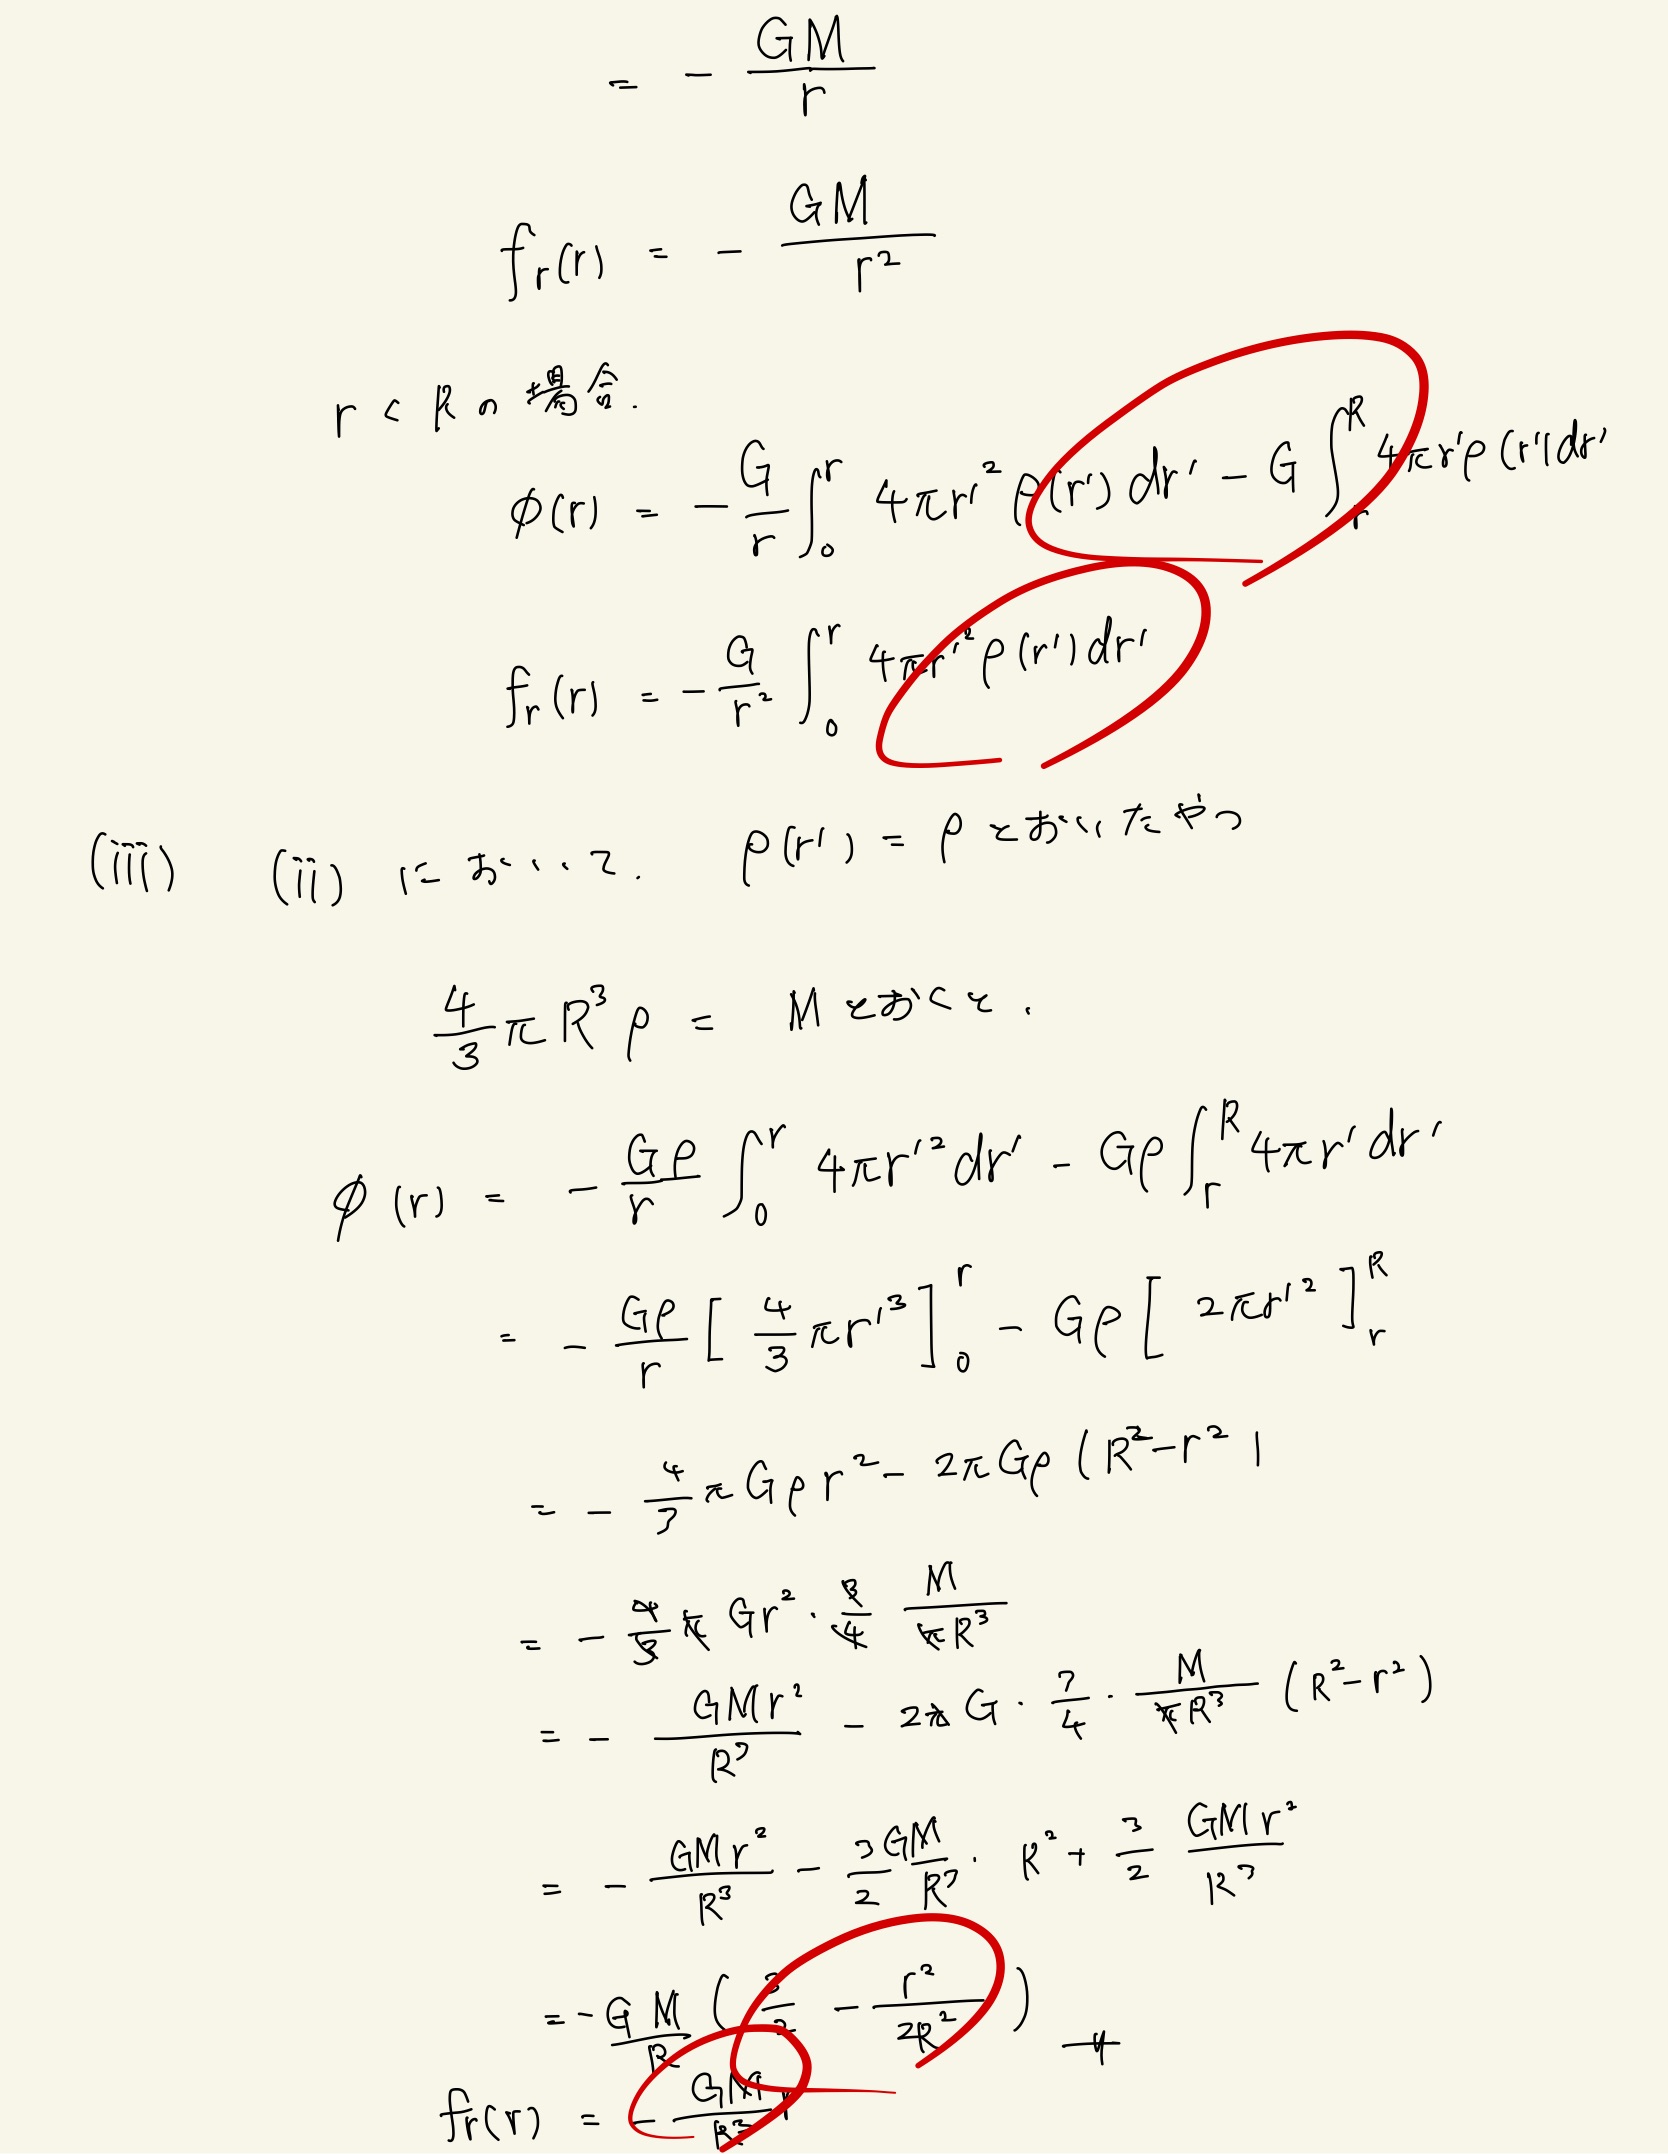 = - GM/r
f_r(r) = - GM/r²
r < R の場合.
φ(r) = - G/r ∫_0^r 4πr'² ρ(r') dr' - G ∫_r^R 4πr'ρ(r')dr'
f_r(r) = - G/r² ∫_0^r 4πr'² ρ(r')dr'
(iii) (ii) において. ρ(r') = ρ とおいたやつ
4/3 πR³ρ = M とおくと.
φ(r) = - Gρ/r ∫_0^r 4πr'² dr' - Gρ ∫_r^R 4πr' dr'
= - Gρ/r [ 4/3 πr'³ ]_0^r - Gρ [ 2πr'² ]_r^R
= - 4/3 πGρr² - 2πGρ (R² - r²)
= - 4/3 π Gr² · 3/4 M/πR³
= - GMr²/R³ - 2πG · 3/4 · M/πR³ (R² - r²)
= - GMr²/R³ - 3/2 GM/R³ · R² + 3/2 GMr²/R³
= - GM/R ( 3/2 - r²/2R² )
f_r(r) = - GM/R³ r